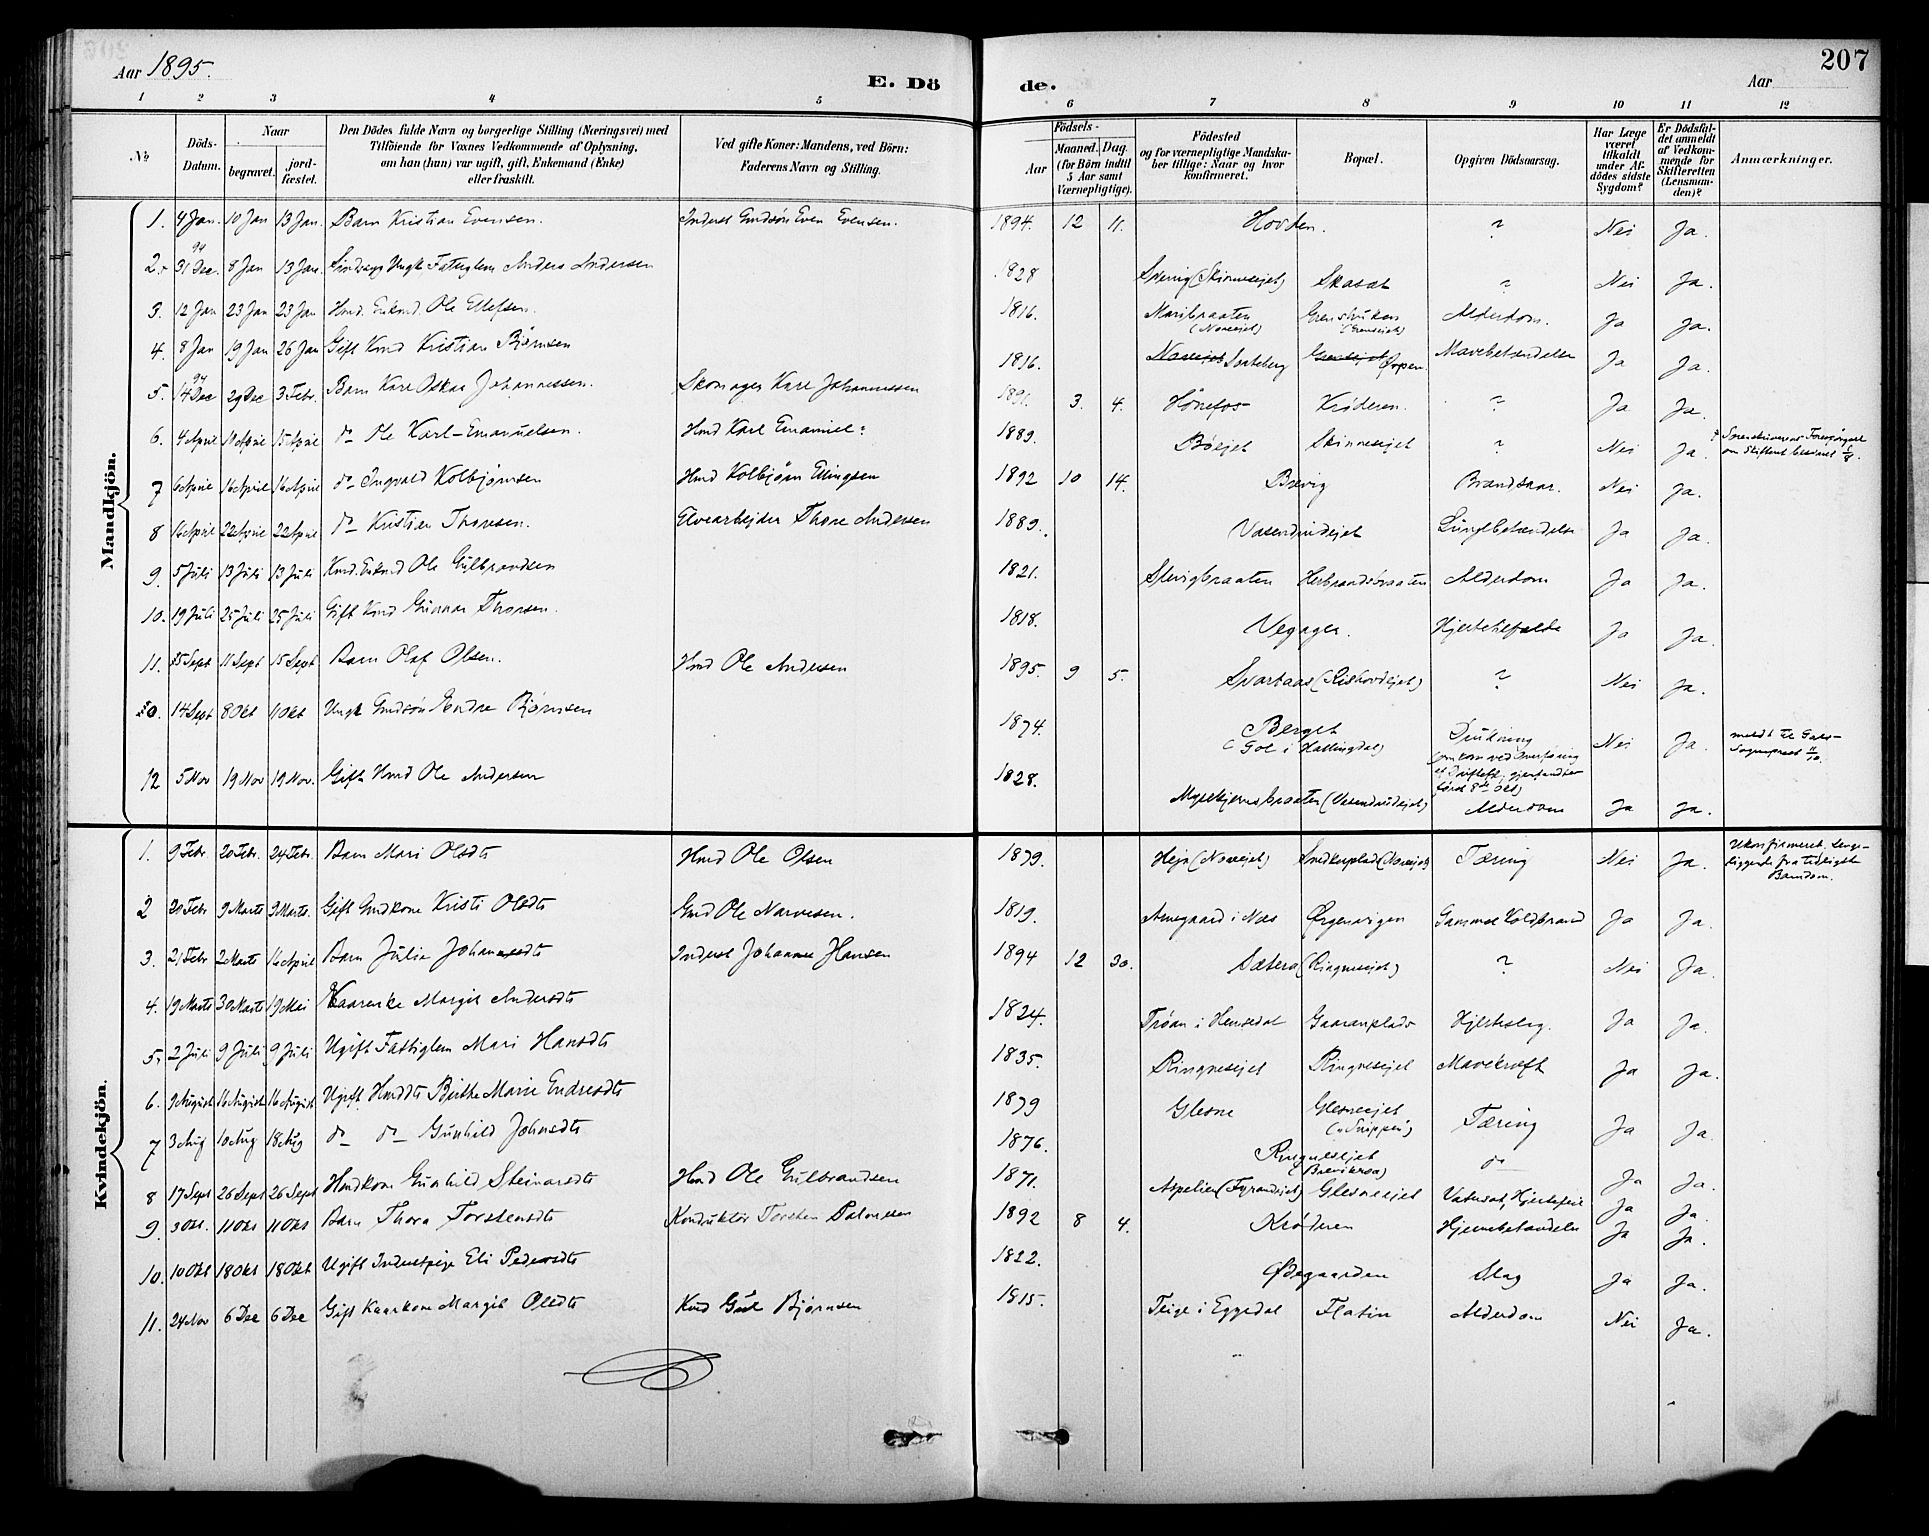 207
Aar 1895.
E. Döde.
Aar
1 2 3 4 5 6 7 8 9 10 11 12
No. Döds-Datum. Naar begravet. jordfæstet. Den Dödes fulde Navn og borgerlige Stilling (Næringsvei) med Tilföiende for Voxnes Vedkommende af Oplysning, om han (hun) var ugift, gift, Enkemand (Enke) eller fraskilt. Ved gifte Koner: Mandens, ved Börn: Faderens Navn og Stilling. Födsels- Aar Maaned. Dag. (for Börn indtil 5 Aar samt Værnepligtige). Födested og for værnepligtige Mandskaber tillige: Naar og hvor konfirmeret. Bopæl. Opgiven Dödsaarsag. Har Læge været tilkaldt under Afdödes sidste Sygdom? Er Dödsfaldet anmeldt af Vedkommende for Skifteretten (Lensmanden)? Anmærkninger.
Mandkjön.
1. 4 Jan. 10 Jan 13 Jan. Barn Kristian Evensen. Inderst Gmdsøn Even Evensen. 1894. 12 11. Hovden. ? Nei Ja.
2. 94 31 Dec. 8 Jan 13 Jan. Ungk Fattiglem Anders Andersen 1828 (Skinnesejet) Skasæt ? Nei Ja.
3. 12 Jan 23 Jan 23 Jan Hmd. Enkmd. Ole Ellefsen. 1816. Maribraaten (Noreejet) Alderdom. Ja Ja.
4. 8 Jan 19 Jan 26 Jan Gift Kmd Kristian Bjørnsen 1816. Noreejet Grensejet Mavebetændelse Ja Ja.
5. 94 14 Dec 29 Dec 3 Febr. Barn Karl Oskar Johannessen. Skomager Karl Johannessen 3. 4. Hønefos Krøderen. ? Ja Ja.
6. 4 April 11 April 15 April do Ole Karl-Emanuelsen. Hmd Karl Emanuel: 1889. Bøejet Skinnesejet ? Nei Ja. Sorenskriverens Forespørgsel om Skiftent besvaret 1/8.
7 6 April 16 April 16 April do Ingvald Kolbjørnsen Hmd Kolbjørn Ellingsen 1892 10 14. Brevig Brandsaar. Nei Ja.
8 16 April 22 April 22 April do Kristian Thoresen. Elvearbejder Thore Andersen 1889. Vasendrudejet Lungebetændelse Ja Ja.
9. 5 Juli 13 Juli 13 Juli Kmd. Enkmd Ole Gulbrandsen 1821. Slevigbraaten Herbrandsbraaten Alderdom Ja Ja.
10. 19 Juli 25 Juli 25 Juli Gift Kmd Gunnar Thorsen. 1818. Vegager. Hjertefeil Ja Ja.
11. Sept 11 Sept 15 Sept Barn Olaf Olsen. Hmd Ole Andersen 1895. 9 5. Svartaas (Rishovdejet) ? Nei Ja.
14 Sept 8 Okt 11 Okt Ungk Gmdsøn Endre Bjørnsen 1874. Berget (Gol i Hallingdal) Drukning (omkom ved Overføring først 8de Okt) Nei Ja. meldt til Gols Sogneprest 11/10.
12 5 Nov 19 Nov 19 Nov. Gift Hmd Ole Andersen 1828. (Vasendrudejet) Alderdom Ja Ja.
Kvindekjön.
1. 9 Febr 20 Febr. 24 Febr. Barn Mari Olsdt Hmd Ole Olsen 1879. Heja (Noreejet) Snedkerplads (Noreejet) Tæring Nei Ja. Ukonfirmeret, sengeliggende fra tidligste Barndom.
2 20 Febr 9 Marts 9 Marts. Gift Gmdkone Kristi Olsdt Gmd Ole Narvesen. 1819. Arnegaard i Næs Ørgenvigen Gammel Koldbrand Ja Ja.
3. 21 Febr 2 Marts 16 April Barn Julia Johannesdt Inderst Johannes Hansen 1894 12 30. Sætera (Ringnesejet) ? Nei Ja.
4. 19 Marts 30 Marts 19 Mai Kaarenke Margit Andersdt 1824. Trøan i Hemsedal Gaaranplads Hjerteslag. Ja Ja.
5. 2 Juli 9 Juli 9 Juli Ugift Fattiglem Mari Hansdt 1835. Ringnesejet Ringnesejet Mavekræft Ja Ja.
6. 9 August 16 August 16 August Ugift Hmddt Berthe Marie Endresdt 1879 Glesne Glesneejet Tæring Ja Ja.
7 3 Aug 10 Aug 18 Aug do do Gunhild Johnsdt 1876. Ringnesejet (Brevikroa) do Ja Ja.
8 17 Sept 26 Sept 26 Sept Hmdkone Gunhild Steinarsdt Hmd Ole Gulbrandsen 1871. Aspelien (Fyrandejet) Glesneejet Vatersot, Hjertefeil Ja Ja.
9. 3 Okt. 11 Okt 11 Okt Barn Thora Torstensdt Konduktør Torsten Paulsen 1892 8 4. Krøderen Hjernebetændelse Ja Ja.
10. 10 Okt 18 Okt 18 Okt Ugift Inderstpige Eli Pedersdt 1822. Ødegaarden Slag Ja Ja.
11. 24 Nov 6 Dec 6 Dec Gift Kaarkone Margit Olsdt Kmd Gul Bjørnsen 1815. Teige i Eggedal Flatin Alderdom Nei Ja.